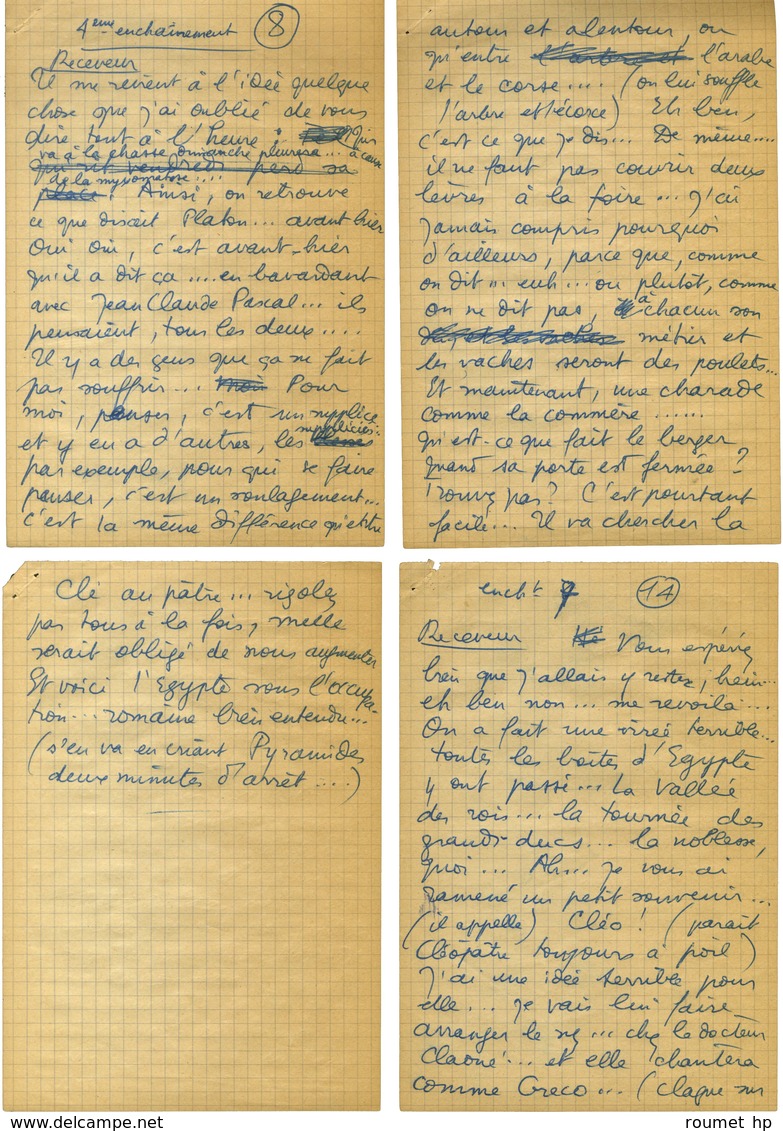 4eme enchaînement (8)
Receveur
Il me revient à l'idée quelque
chose que j'ai oublié de vous
dire tout à l'heure : Qui
va à la chasse dimanche pleurera... à cause
qui rit vendredi perd sa
de la myxomatose....
place ! Ainsi, on retrouve
ce que disait Platon... avant hier
Oui oui, c'est avant-hier
qu'il a dit ça .... en bavardant
avec Jean Claude Pascal... ils
pensaient, tous les deux ....
Il y a des gens que ça ne fait
pas souffrir... Pour
moi, penser, c'est un supplice
et y en a d'autres, les suppliciés..
par exemple, pour qui se faire
panser, c'est un soulagement...
C'est la même différence qu'entre
autour et alentour, ou
qu'entre l'arabe
et le corse.... (on lui souffle
l'arbre et l'écorce) Eh ben,
c'est ce que je dis... De même....
il ne faut pas courir deux
lèvres à la foire ... j'ai
jamais compris pourquoi
d'ailleurs, parce que, comme
on dit... euh... ou plutôt, comme
on ne dit pas, à chacun son
métier et
les vaches seront des poulets...
Et maintenant, une charade
comme la commère ......
qu'est-ce que fait le berger
quand sa porte est fermée ?
trouvez pas ? C'est pourtant
facile... Il va chercher la
Clé au pâtre... rigolez
pas tous à la fois,
serait obligé de nous augmenter
Et voici l'Egypte sous l'occupa-
tion... romaine bien entendu...
(s'en va en criant Pyramides
deux minutes d'arrêt ....)
encht 7 (14)
Receveur Vous espériez
bien que j'allais y rester, hein...
eh ben non... me revoilà....
On a fait une virée terrible...
toutes les boîtes d'Egypte
y ont passé... La Vallée
des rois... la tournée des
grands-ducs... la noblesse,
quoi... Ah... je vous ai
ramené un petit souvenir...
(il appelle) Cléo ! (paraît
Cléopâtre toujours à poil)
J'ai une idée terrible pour
elle... je vais lui faire
arranger le nez... chez le docteur
Claoué... et elle chantera
comme Greco... (claque sur
roumet hp